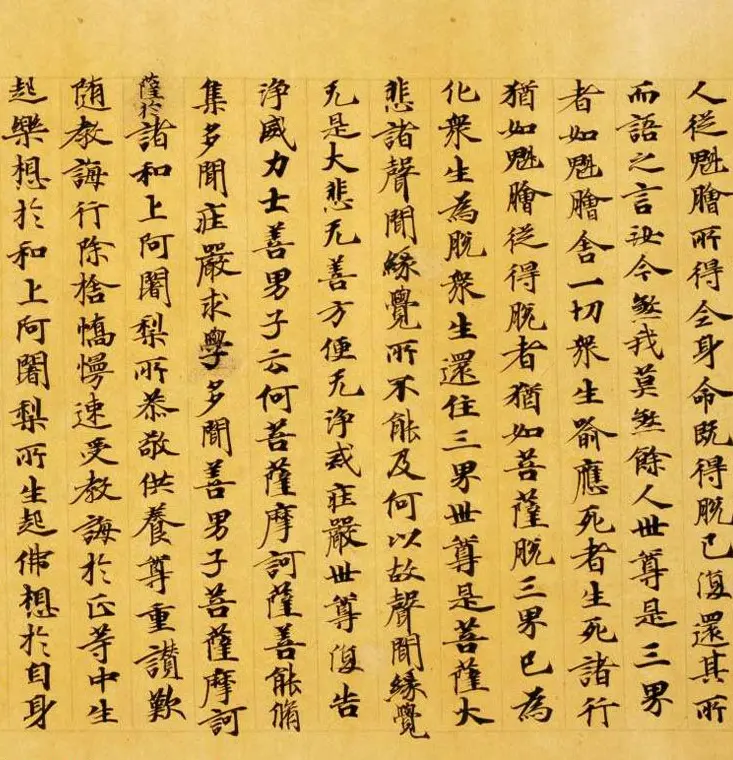 人從魁膾所得全身命既得脫已復還其所
而語之言汝今煞我莫煞餘人世尊是三界
者如魁膾舍一切衆生喻應死者生死諸行
猶如魁膾從得脫者猶如菩薩脫三界已為
化衆生為脫衆生還住三界世尊是菩薩大
悲諸聲聞緣覺所不能及何以故聲聞緣覺
无是大悲无善方便无淨戒莊嚴世尊復告
淨威力士善男子云何菩薩摩訶薩善能脩
集多聞莊嚴求學多聞善男子菩薩摩訶
薩於諸和上阿闍梨所恭敬供養尊重讚歎
随教誨行除捨憍慢速受教誨於正等中生
起樂想於和上阿闍梨所生起佛想於自身